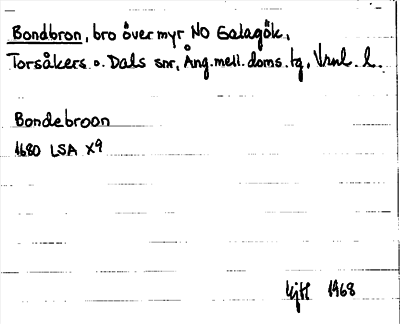 Bondbron, bro över myr NO Galagök,
Torsåkers o. Dals snr, Ång. mell. doms. tg, Vrnl. l.
Bondebroon
1680 LSA X9
1968